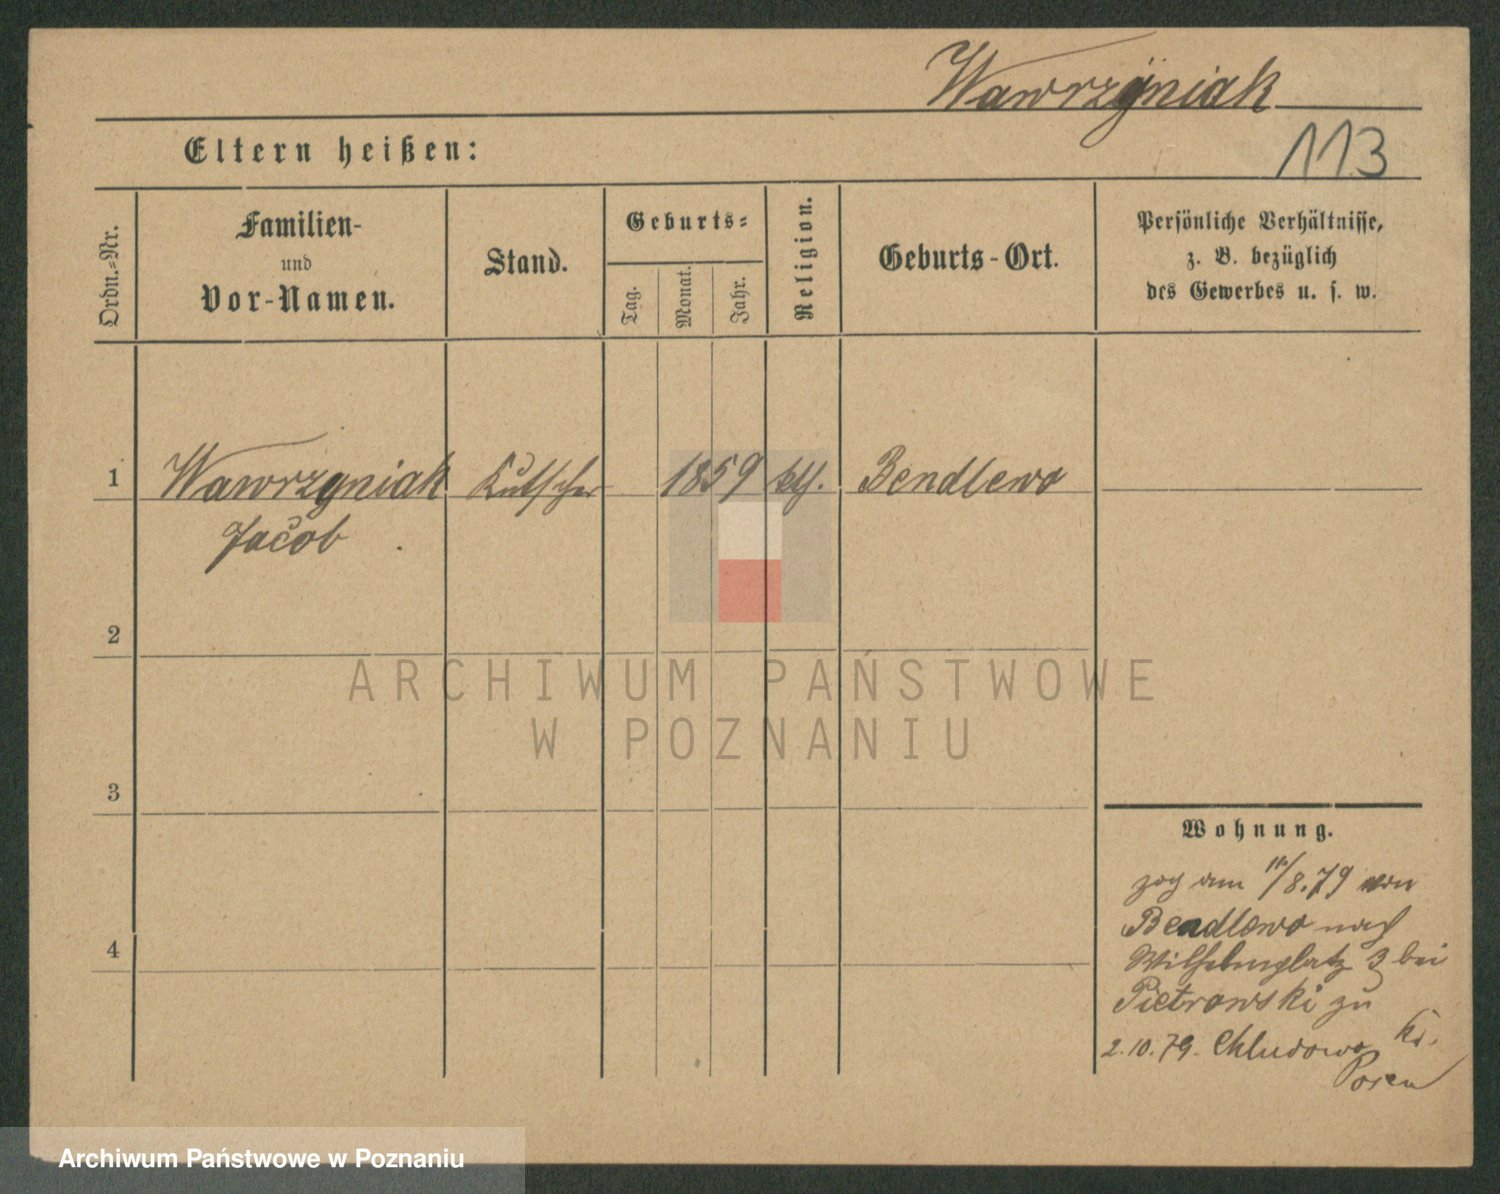 Wawrzÿniak
113
Eltern heißen:
Ordn.-Nr.
Familien-
und
Vor-Namen.
Stand.
Geburts-
Tag.
Monat.
Jahr.
Religion.
Geburts-Ort.
Persönliche Verhältnisse,
z. B. bezüglich
des Gewerbes u. s. w.
1
Wawrzyniak
Jacob
Kutscher
1859
kth.
Bendlewo
2
3
4
Wohnung.
zog am 11/8.79 von
Bendlewo nach
Wilhelmsplatz 3 bei
Pietrowski zu
2.10.79. Chludowo Kr.
Posen
ARCHIWUM PAŃSTWOWE
W POZNANIU
Archiwum Państwowe w Poznaniu